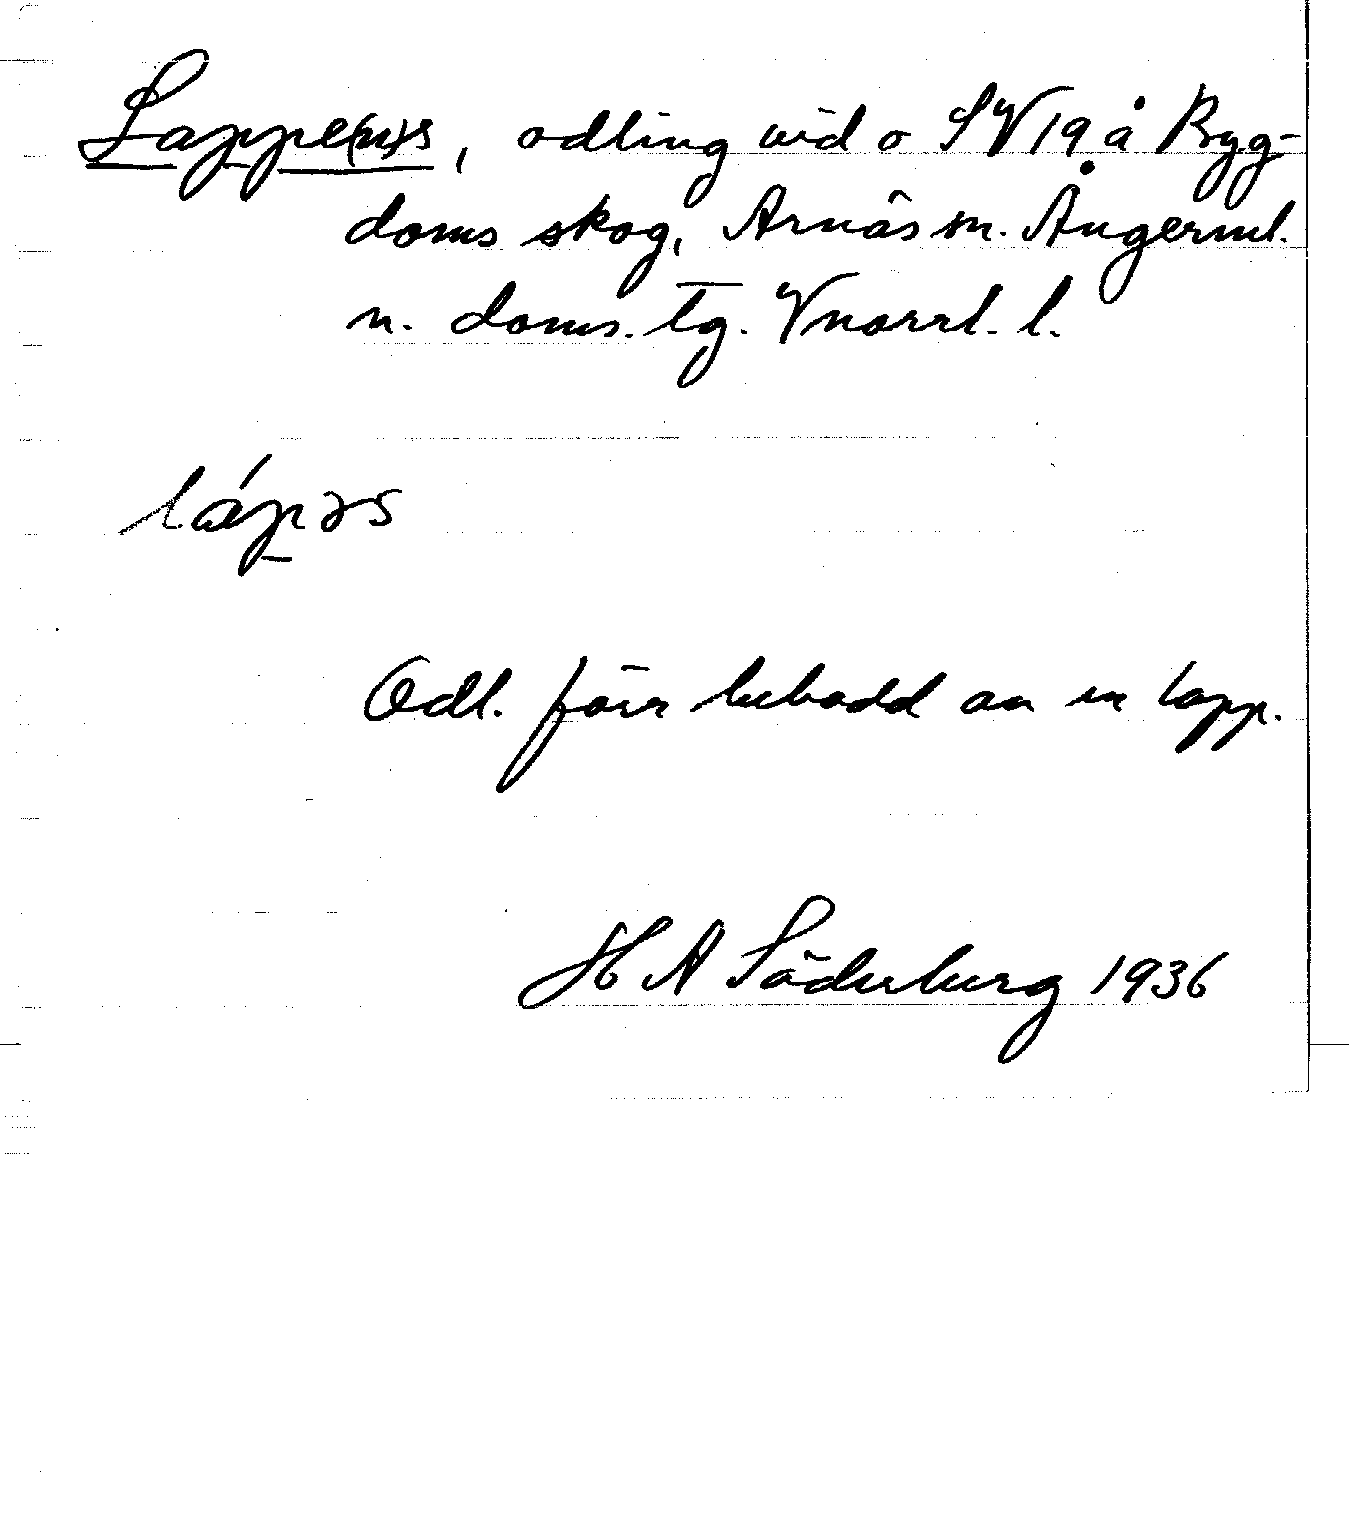 Lappe(n)s, odling vid o SV 19 å Byg-
doms skog, Arnäs sn. Ångerml.
n. doms. tg. Vnorrl. l.
lápəs
Odl. förr bebodd av en lapp.
H A Söderberg 1936